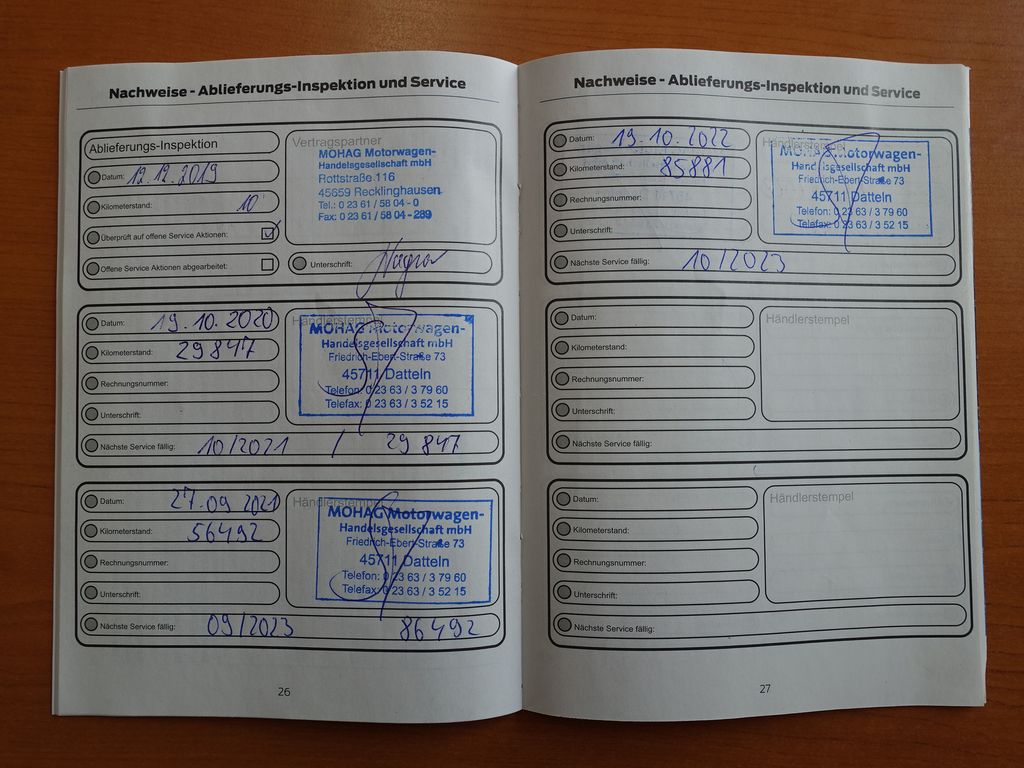 Nachweise - Ablieferungs-Inspektion und Service
Ablieferungs-Inspektion
Datum: 12.12.2019
Kilometerstand: 10
Überprüft auf offene Service Aktionen:
Offene Service Aktionen abgearbeitet:
Vertragspartner
MOHAG Motorwagen-
Handelsgesellschaft mbH
Rottstraße 116
45659 Recklinghausen
Tel.: 0 23 61 / 58 04 - 0
Fax: 0 23 61 / 58 04 - 289
Unterschrift:
Datum: 19.10.2020
Kilometerstand: 29847
Rechnungsnummer:
Unterschrift:
Händlerstempel
MOHAG Motorwagen-
Handelsgesellschaft mbH
Friedrich-Ebert-Straße 73
45711 Datteln
Telefon: 0 23 63 / 3 79 60
Telefax: 0 23 63 / 3 52 15
Nächste Service fällig: 10/2021 / 29847
Datum: 27.09.2021
Kilometerstand: 56492
Rechnungsnummer:
Unterschrift:
Händlerstempel
MOHAG Motorwagen-
Handelsgesellschaft mbH
Friedrich-Ebert-Straße 73
45711 Datteln
Telefon: 0 23 63 / 3 79 60
Telefax: 0 23 63 / 3 52 15
Nächste Service fällig: 09/2023 86492
26
Nachweise - Ablieferungs-Inspektion und Service
Datum: 19.10.2022
Kilometerstand: 85881
Rechnungsnummer:
Unterschrift:
Händlerstempel
MOHAG Motorwagen-
Handelsgesellschaft mbH
Friedrich-Ebert-Straße 73
45711 Datteln
Telefon: 0 23 63 / 3 79 60
Telefax: 0 23 63 / 3 52 15
Nächste Service fällig: 10/2023
Datum:
Kilometerstand:
Rechnungsnummer:
Unterschrift:
Händlerstempel
Nächste Service fällig:
Datum:
Kilometerstand:
Rechnungsnummer:
Unterschrift:
Händlerstempel
Nächste Service fällig:
27